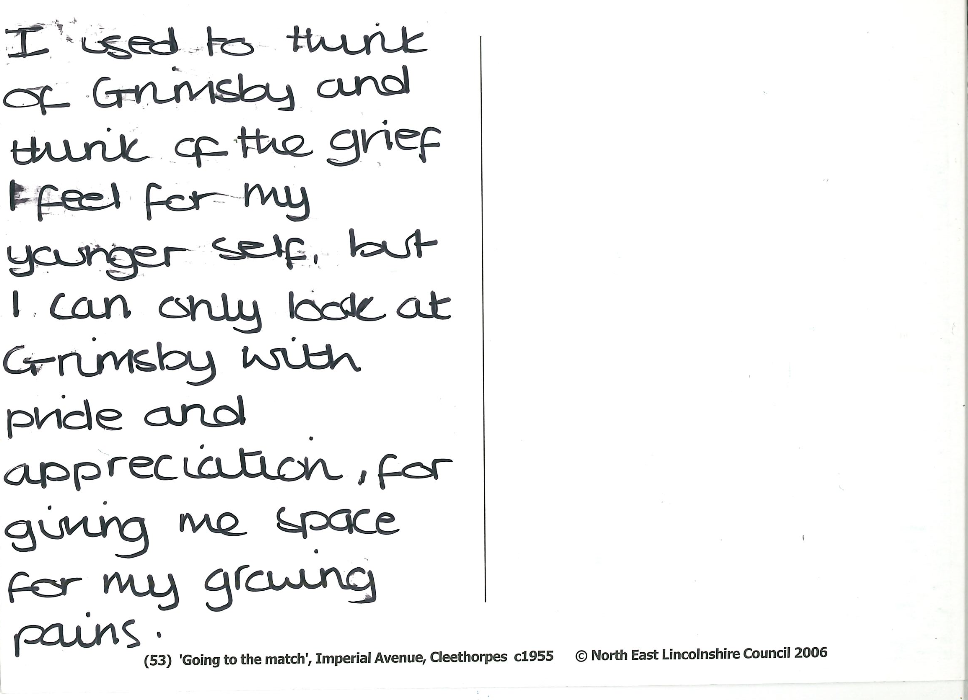 I used to think
of Grimsby and
think of the grief
I feel for my
younger self, but
I can only look at
Grimsby with
pride and
appreciation, for
giving me space
for my growing
pains.
(53) 'Going to the match', Imperial Avenue, Cleethorpes c1955 © North East Lincolnshire Council 2006